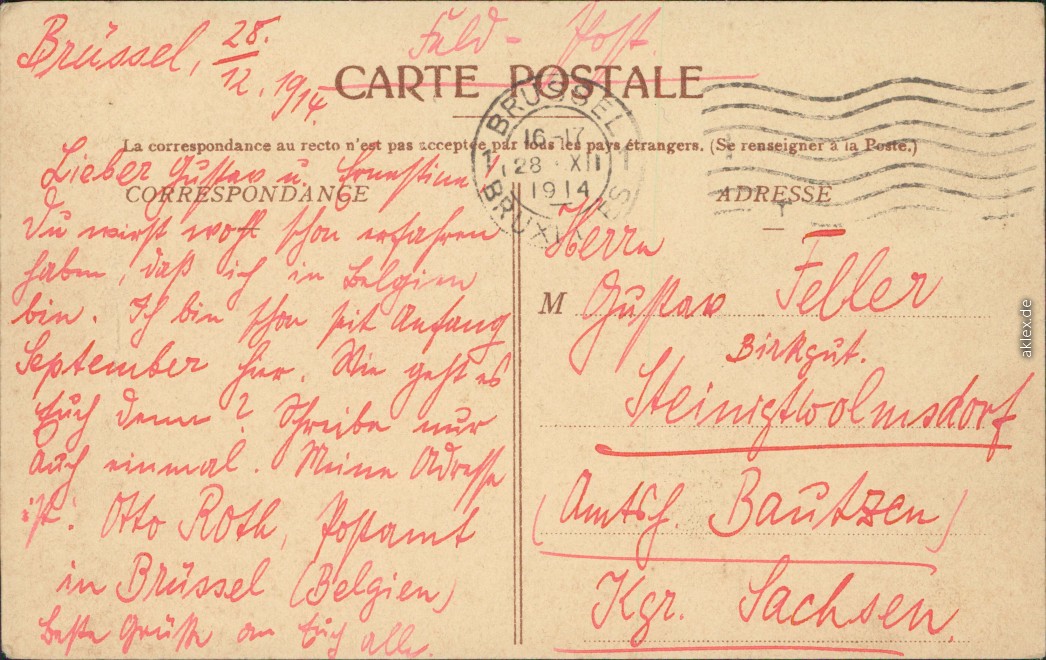 Brüssel, 28.
12. 1914
Feld-Post.
CARTE POSTALE
La correspondance au recto n'est pas acceptée par tous les pays étrangers. (Se renseigner à la Poste.)
CORRESPONDANCE
Lieber Gustav u. Ernestine!
Du wirst wohl schon erfahren
haben, daß ich in Belgien
bin. Ich bin schon seit Anfang
September hier. Wie geht es
Euch denn? Schreibe nur
auch einmal. Meine Adresse
ist: Otto Roth, Postamt
in Brüssel (Belgien)
beste Grüße an Euch alle.
1 BRUSSEL 1
16-17
28 XII
1914
BRUXELLES
ADRESSE
Herrn
M Gustav Feller
Birkgut.
Steinigtwolmsdorf
(Amtsh. Bautzen)
Kgr. Sachsen.
aklex.de